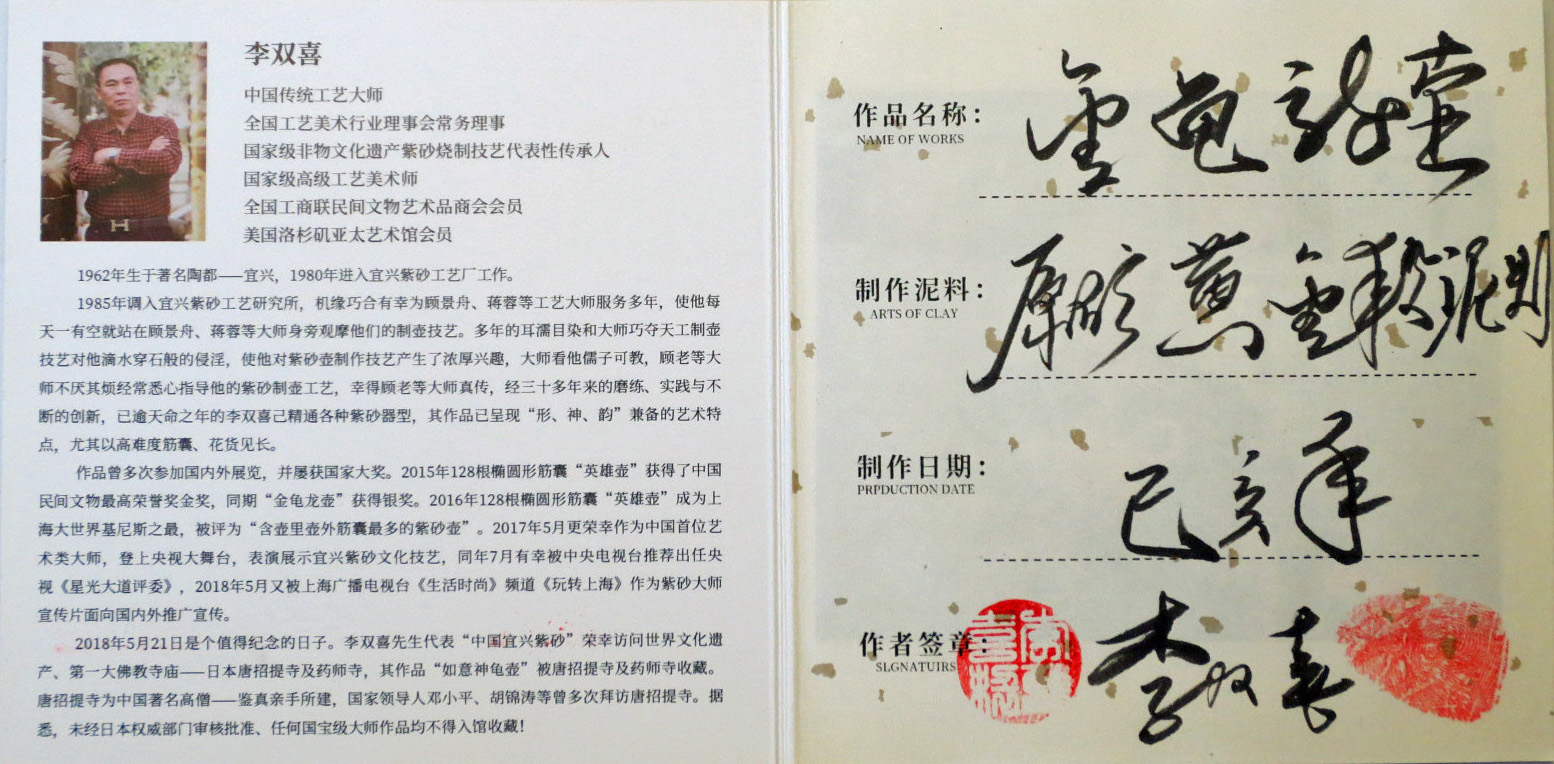 李双喜
中国传统工艺大师
全国工艺美术行业理事会常务理事
国家级非物文化遗产紫砂烧制技艺代表性传承人
国家级高级工艺美术师
全国工商联民间文物艺术品商会会员
美国洛杉矶亚太艺术馆会员
1962年生于著名陶都——宜兴，1980年进入宜兴紫砂工艺厂工作。
1985年调入宜兴紫砂工艺研究所，机缘巧合有幸为顾景舟、蒋蓉等工艺大师服务多年，使他每
天一有空就站在顾景舟、蒋蓉等大师身旁观摩他们的制壶技艺。多年的耳濡目染和大师巧夺天工制壶
技艺对他滴水穿石般的侵淫，使他对紫砂壶制作技艺产生了浓厚兴趣，大师看他儒子可教，顾老等大
师不厌其烦经常悉心指导他的紫砂制壶工艺，幸得顾老等大师真传，经三十多年来的磨练、实践与不
断的创新，已逾天命之年的李双喜己精通各种紫砂器型，其作品已呈现“形、神、韵”兼备的艺术特
点，尤其以高难度筋囊、花货见长。
作品曾多次参加国内外展览，并屡获国家大奖。2015年128根椭圆形筋囊“英雄壶”获得了中国
民间文物最高荣誉奖金奖，同期“金龟龙壶”获得银奖。2016年128根椭圆形筋囊“英雄壶”成为上
海大世界基尼斯之最，被评为“含壶里壶外筋囊最多的紫砂壶”。2017年5月更荣幸作为中国首位艺
术类大师，登上央视大舞台，表演展示宜兴紫砂文化技艺，同年7月有幸被中央电视台推荐出任央
视《星光大道评委》，2018年5月又被上海广播电视台《生活时尚》频道《玩转上海》作为紫砂大师
宣传片面向国内外推广宣传。
2018年5月21日是个值得纪念的日子。李双喜先生代表“中国宜兴紫砂”荣幸访问世界文化遗
产、第一大佛教寺庙——日本唐招提寺及药师寺，其作品“如意神龟壶”被唐招提寺及药师寺收藏。
唐招提寺为中国著名高僧——鉴真亲手所建，国家领导人邓小平、胡锦涛等曾多次拜访唐招提寺。据
悉，未经日本权威部门审核批准、任何国宝级大师作品均不得入馆收藏！
作品名称：
NAME OF WORKS
金龟龙壶
制作泥料：
ARTS OF CLAY
原矿黄金段泥
制作日期：
PRPDUCTION DATE
己亥年
作者签章：
SLGNATUIRS
李双喜